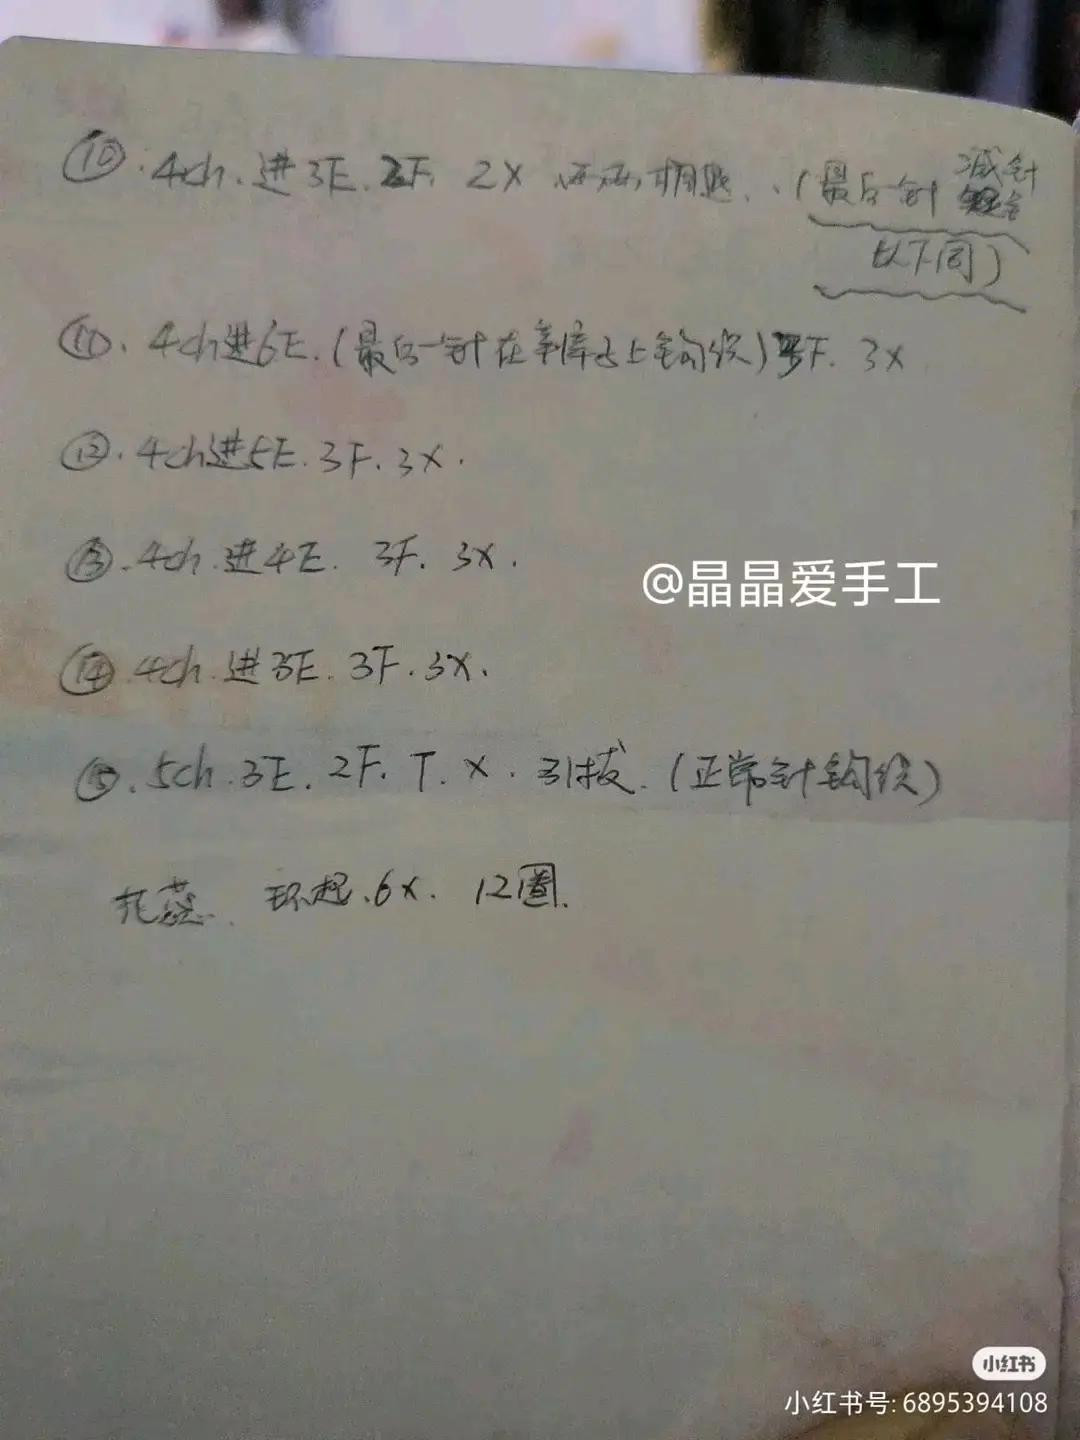 ⑩. 4ch. 进3E. 2F. 2X (最后一针减针
以下同)
⑪. 4ch进6E. (最后一针在上钩织) 3F. 3X
⑫. 4ch进5E. 3F. 3X.
⑬. 4ch. 进4E. 3F. 3X.
⑭. 4ch. 进3E. 3F. 3X.
⑮. 5ch. 3E. 2F. T. X. 引拔. (正常针钩织)
花蕊. 环起. 6X. 12圈.
@晶晶爱手工
小红书
小红书号: 6895394108